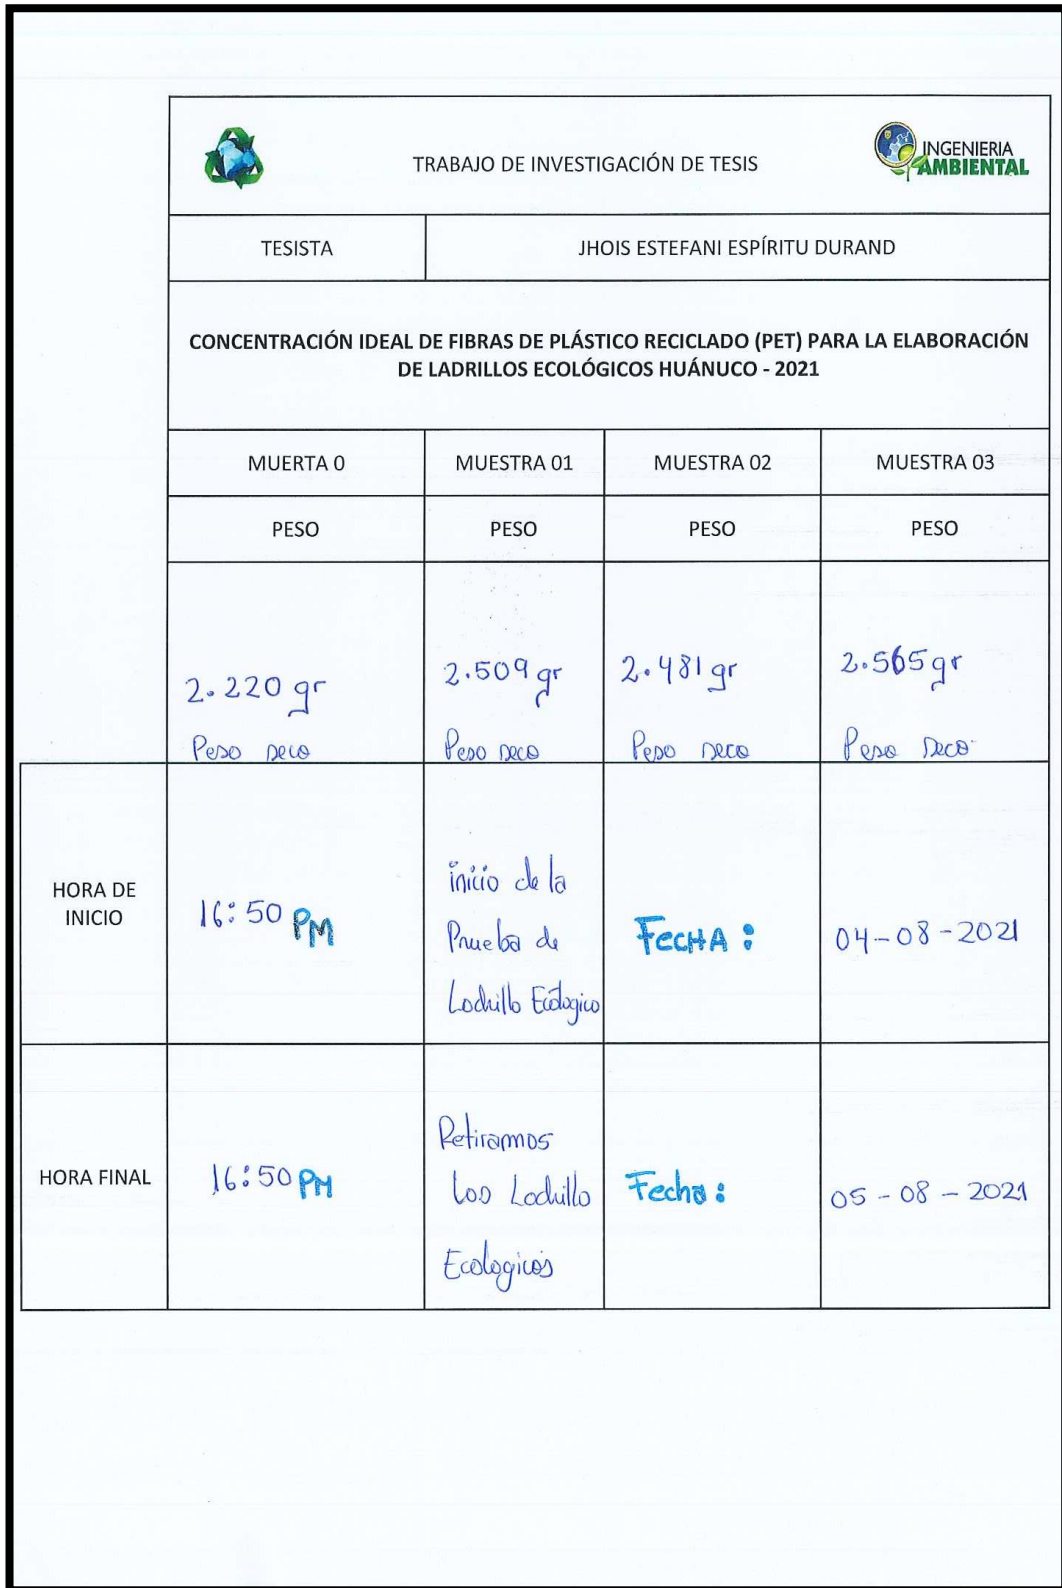 TRABAJO DE INVESTIGACIÓN DE TESIS
INGENIERIA
AMBIENTAL
TESISTA
JHOIS ESTEFANI ESPÍRITU DURAND
CONCENTRACIÓN IDEAL DE FIBRAS DE PLÁSTICO RECICLADO (PET) PARA LA ELABORACIÓN
DE LADRILLOS ECOLÓGICOS HUÁNUCO - 2021
MUERTA 0
MUESTRA 01
MUESTRA 02
MUESTRA 03
PESO
PESO
PESO
PESO
2.220 gr
Peso seco
2.509 gr
Peso seco
2.481 gr
Peso seco
2.565 gr
Peso seco
HORA DE
INICIO
16:50 PM
inicio de la
Prueba de
Ladrillo Ecologico
FECHA :
04-08-2021
HORA FINAL
16:50 PM
Retiramos
Los Ladrillo
Ecologicos
Fecha :
05-08-2021